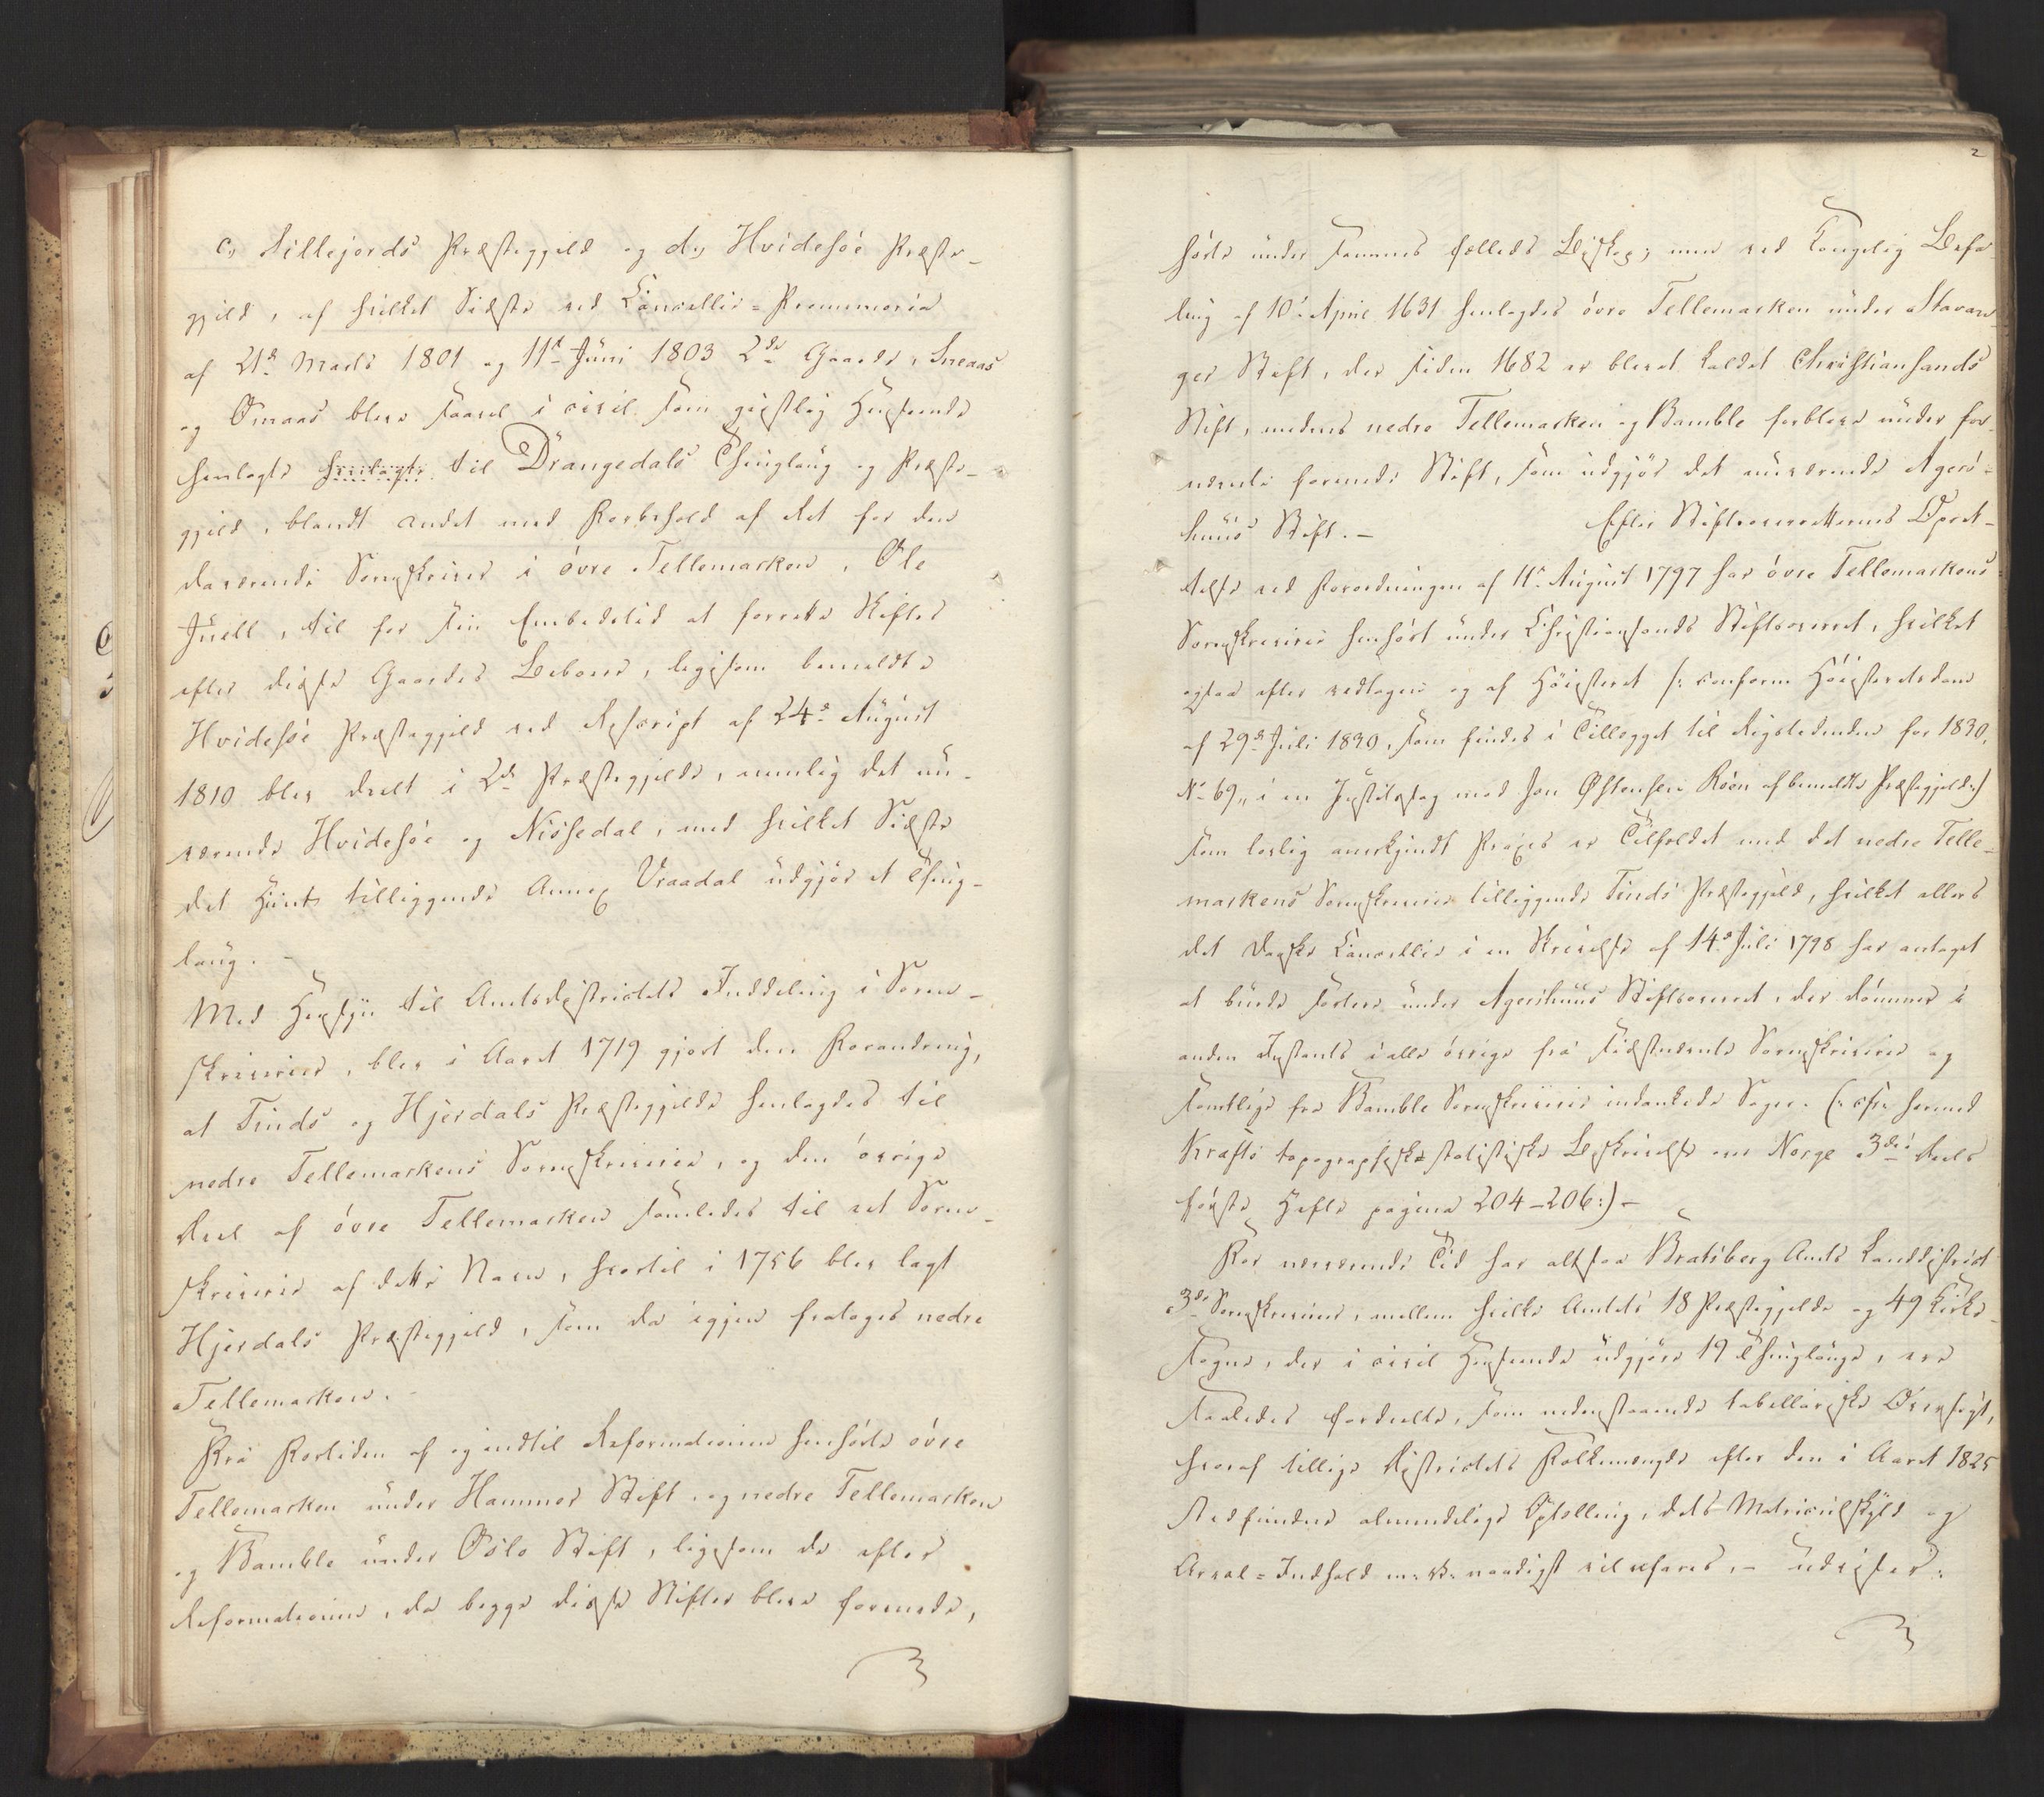 c, Sillejords Præstegjeld og d, Hvidesøe Præste-
gjeld, af hvilket Sidste ved Cancellie-Promemoria
af 21d Marts 1801 og 11d Juni 1803 2de Gaarde, Sneaas
og Omaas bleve saavel i civil som geistlig Henseende
henlagte henlagte til Drangedals Thinglaug og Præste-
gjeld, blandt andet med Forbehold af Ret for den
daværende Sorenskriver i øvre Tellemarken, Ole
Juell, til for sin Embedstid at forrette Skifter
efter disse Gaardes Beboere, ligesom bemeldte
Hvidesøe Præstegjeld ved Rescript af 24d August
1810 blev deelt i 2de Præstegjelde, nemlig det nu-
værende Hvidesøe og Nissedal, med hvilket Sidste
det hiint tilliggende Annex Vraadal udgjør et Thing-
laug. -
Med Hensyn til Amtsdistrictets Inddeling i Soren-
skriverier, blev i Aaret 1719 gjort den Forandring,
at Tinds og Hjerdals Præstegjelde henlagdes til
nedre Tellemarkens Sorenskriverie, og den øvrige
Deel af øvre Tellemarken samledes til eet Soren-
skriverie af dette Navn, hvortil i 1756 blev lagt
Hjerdals Præstegjeld, som da igjen fratoges nedre
Tellemarken. -
Fra Fortiden af og indtil Reformationen henhørte øvre
Tellemarken under Hammer Stift, og nedre Tellemarken
og Bamble under Oslo Stift, ligesom de efter
Reformationen, da begge disse Stifter bleve forenede,
2
hørte under sammes fælleds Biskop; men ved Kongelig Befa-
ling af 10d April 1631 henlagdes øvre Tellemarken under Stavan-
ger Stift, der siden 1682 er blevet kaldet Christiansands
Stift, medens nedre Tellemarken og Bamble forbleve under for-
nævnte forenede Stift, som udgjør det nuværende Agers-
huus Stift. - Efter Stiftsoverretternes Opret-
telse ved Forordningen af 11d August 1797 har øvre Tellemarkens
Sorenskriverie henhørt under Christiansands Stiftsoverret, hvilket
ogsaa efter vedtagen og af Høiesteret /: conform Høiesteretsdom
af 29d Juli 1830, som findes i Tillægget til Rigstidenden for 1830,
No 69, i en Justitssag mod Jon Østensen Roon af bemeldte Præstegjeld :/
som lovlig anerkjendt Praxis er Tilfældet med det nedre Telle-
markens Sorenskriverie tilliggende Tinds Præstegjeld, hvilket ellers
det danske Cancellie i en Skrivelse af 14d Juli 1798 har antaget
at burde sortere under Agershuus Stiftsoverret, der dømmer i
anden Instants i alle øvrige fra sidstnævnte Sorenskriverie og
samtlige fra Bamble Sorenskriverie indankede Sager. (: cfr. hermed
Krafts topographisk-statistiske Beskrivelse over Norge 3die Deels
første Hefte pagina 204-206:) -
For nærværende Tid har altsaa Bratsberg Amts Landdistrict
3de Sorenskriverier, mellem hvilke Amtets 18 Præstegjelde og 49 Kirke-
sogne, der i civil Henseende udgjøre 19 Thinglauge, ere
saaledes fordeelte, som nedenstaaende tabellariske Oversigt,
hvoraf tillige Districtets Folkemængde efter den i Aaret 1825
stedfundne almindelige Optælling, dets Matriculskyld og
Areal-Indhold naadigst vil erfares, - udviser: